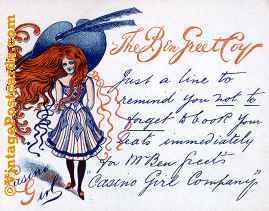 The Ben Greet Coy
Just a line to
remind you not to
forget to book your
seats immediately
for Mr Ben Greet's
"Casino Girl Company"
Casino
Girl
©VintagePostcards.com